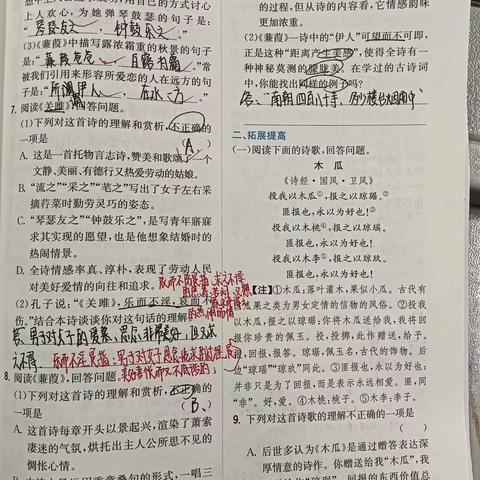 上人欢心,为她弹琴鼓瑟的句子是:
“琴瑟友之,钟鼓乐之”
(3)《蒹葭》中描写露浓霜重的秋景的句子
是:“蒹葭苍苍,白露为霜”。常
被我们引用来形容所爱恋的人在远方的句
子是:“所谓伊人,在水一方”
7. 阅读《关雎》,回答问题。
(1)下列对这首诗的理解和赏析,不正确的
一项是 (A)
A. 这是一首托物言志诗,赞美和歌颂了一个
文静、美丽、有德行又热爱劳动的姑娘。
B. “流之”“采之”“芼之”写出了女子左右采
摘荇菜时勤劳灵巧的姿态。
C. “琴瑟友之”“钟鼓乐之”,是写青年寤寐
求其实现的愿望,也是他想象结婚时的
热闹情景。
D. 全诗情感率真、淳朴,表现了劳动人民
对美好爱情的向往和追求。
(2)孔子说:“《关雎》,乐而不淫,哀而不
伤。”结合本诗谈谈你对这句话的理解
8. 阅读《蒹葭》,回答问题。
(1)下列对这首诗的理解和赏析,不正确的
一项是 (B)
A. 这首诗每章开头以景起兴,渲染了萧索
凄迷的气氛,烘托出主人公所思不见的
惆怅心情。
的过程,但从诗的内容看,它情韵意味
更加浓重。
(2)《蒹葭》一诗中的“伊人”可望而不可即,
正是这种“距离产生美感”,使得全诗有一
种神秘莫测的朦胧美。在学过的古诗词
中,你能找出同样的例子吗?
答:南朝四百八十寺,多少楼台烟雨中
二、拓展提高
(一)阅读下面的诗歌,回答问题。
木 瓜
《诗经·国风·卫风》
投我以木瓜①,报之以琼琚②。
匪报也,永以为好也!③
投我以木桃④,报之以琼瑶。
匪报也,永以为好也!
投我以木李⑤,报之以琼玖。
匪报也,永以为好也!
【注】①木瓜:落叶灌木,果似小瓜。古代有
以瓜果之类为男女定情的信物的风俗。②投我
以木瓜,报之以琼琚:你将木瓜送给我,我将回
报你珍贵的佩玉。投,投掷,此作赠送,给予。
报,回报,报答。琼琚,佩玉名,古代的饰物。后
边“琼瑶”“琼玖”同此。③匪报也,永以为好也:
并非只是为了回报,而是表示永远相爱。匪,同
“非”。好,爱。④木桃:桃子。⑤木李:李子。
9. 下列对这首诗歌的理解不正确的一项是
( )
A. 后世多认为《木瓜》是通过赠答表达深
厚情意的诗作。你赠送给我“木瓜”,我